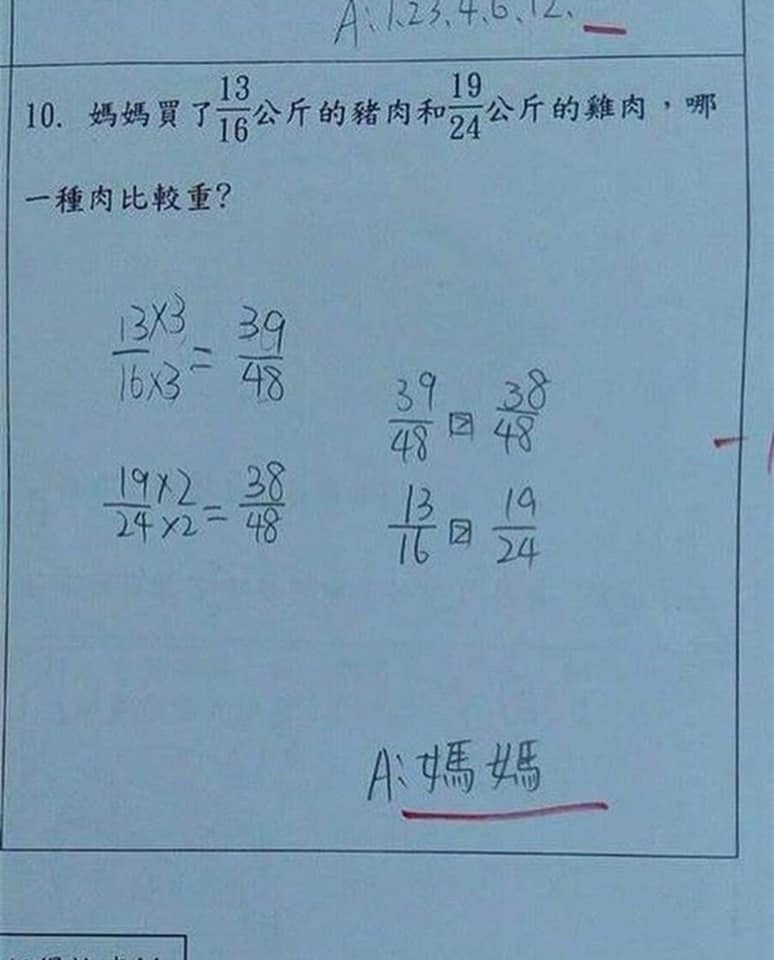 A:1、2、3、4、6、12、
10. 媽媽買了13/16公斤的豬肉和19/24公斤的雞肉,哪
一種肉比較重?
13×3/16×3 = 39/48
39/48 > 38/48
19×2/24×2 = 38/48
13/16 > 19/24
A:媽媽